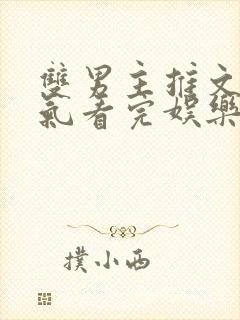 雙男主推文
氣看完娛樂
撲小西